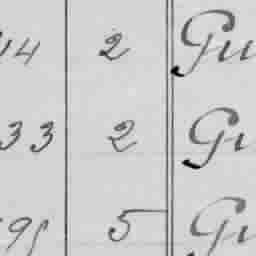 14 2 Gu
33 2 Gu
95 5 Gu